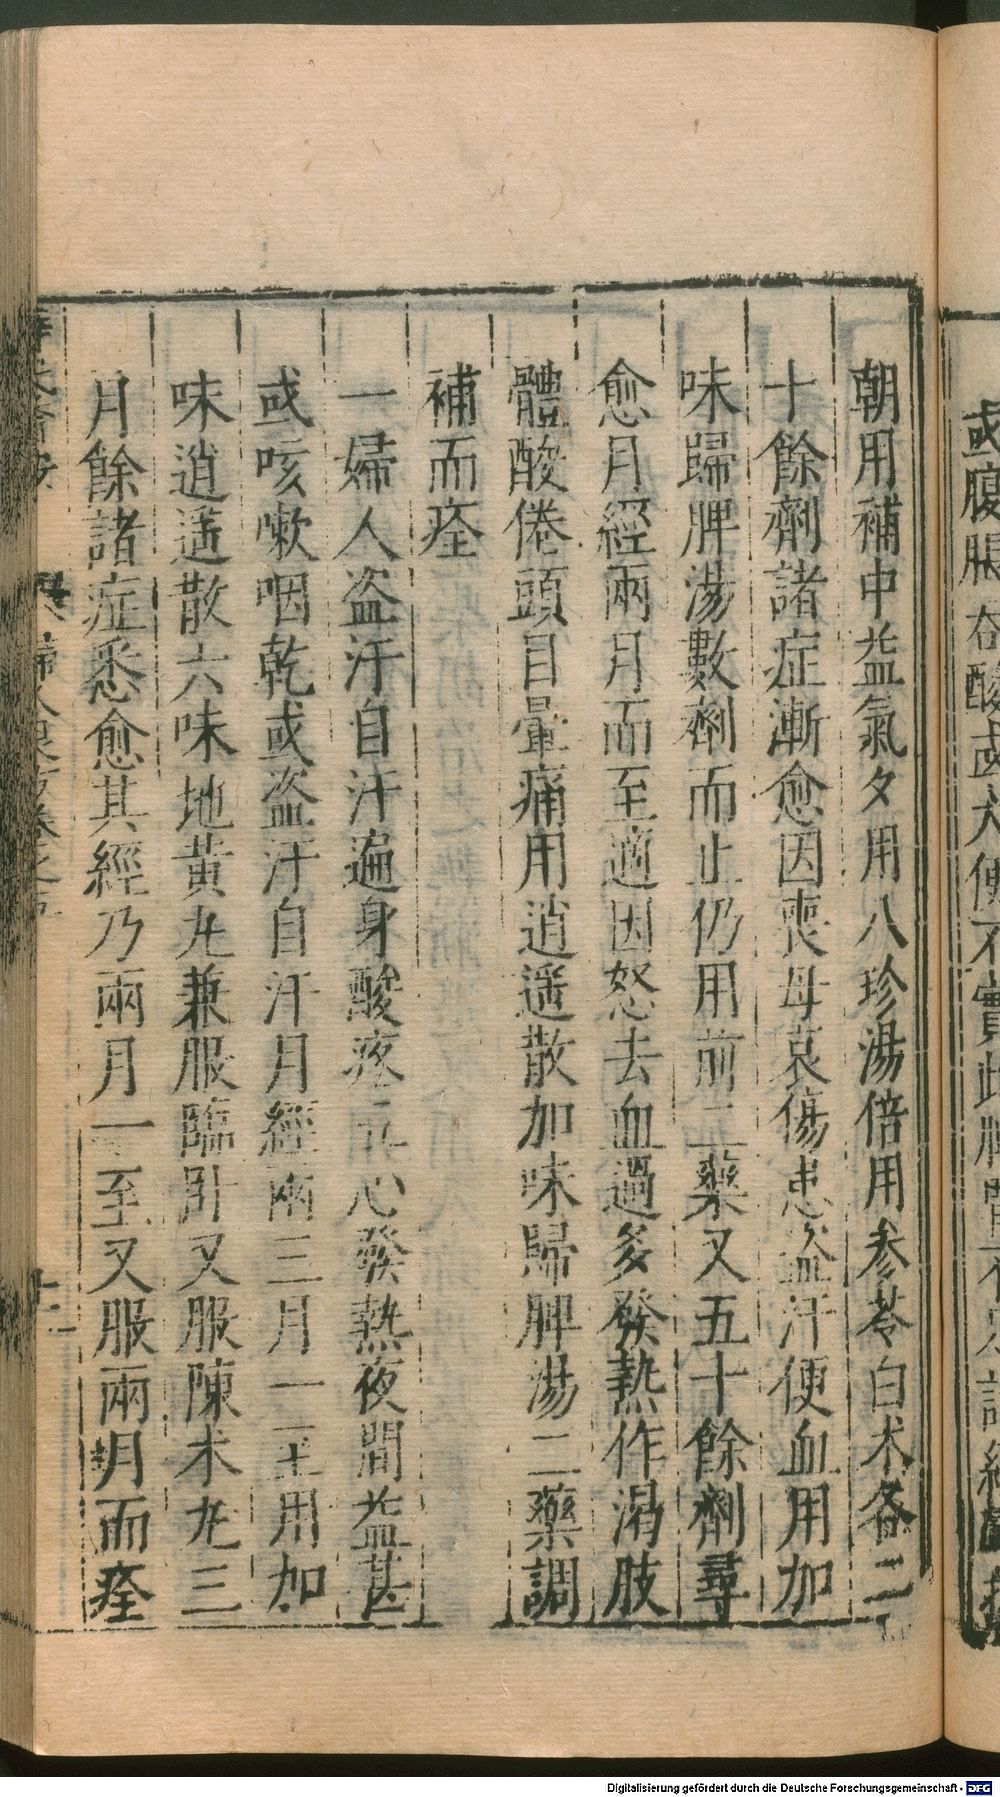 朝用補中益氣夕用八珍湯倍用參苓白术各二
十餘劑諸症漸愈因喪母哀傷患盗汗便血用加
味歸脾湯數劑而止仍用前二藥又五十餘劑尋
愈月經兩月而至適因怒去血過多發熱作渴肢
體酸倦頭目暈痛用逍遥散加味歸脾湯二藥調
補而痊
一婦人盗汗自汗遍身酸疼五心發熱夜間益甚
或咳嗽咽乾或盗汗自汗月經兩三月一至用加
味逍遥散六味地黄丸兼服臨卧又服陳术丸三
月餘諸症悉愈其經乃兩月一至又服兩月而痊
婦人良方卷之五
十二
Digitalisierung gefördert durch die Deutsche Forschungsgemeinschaft - DFG